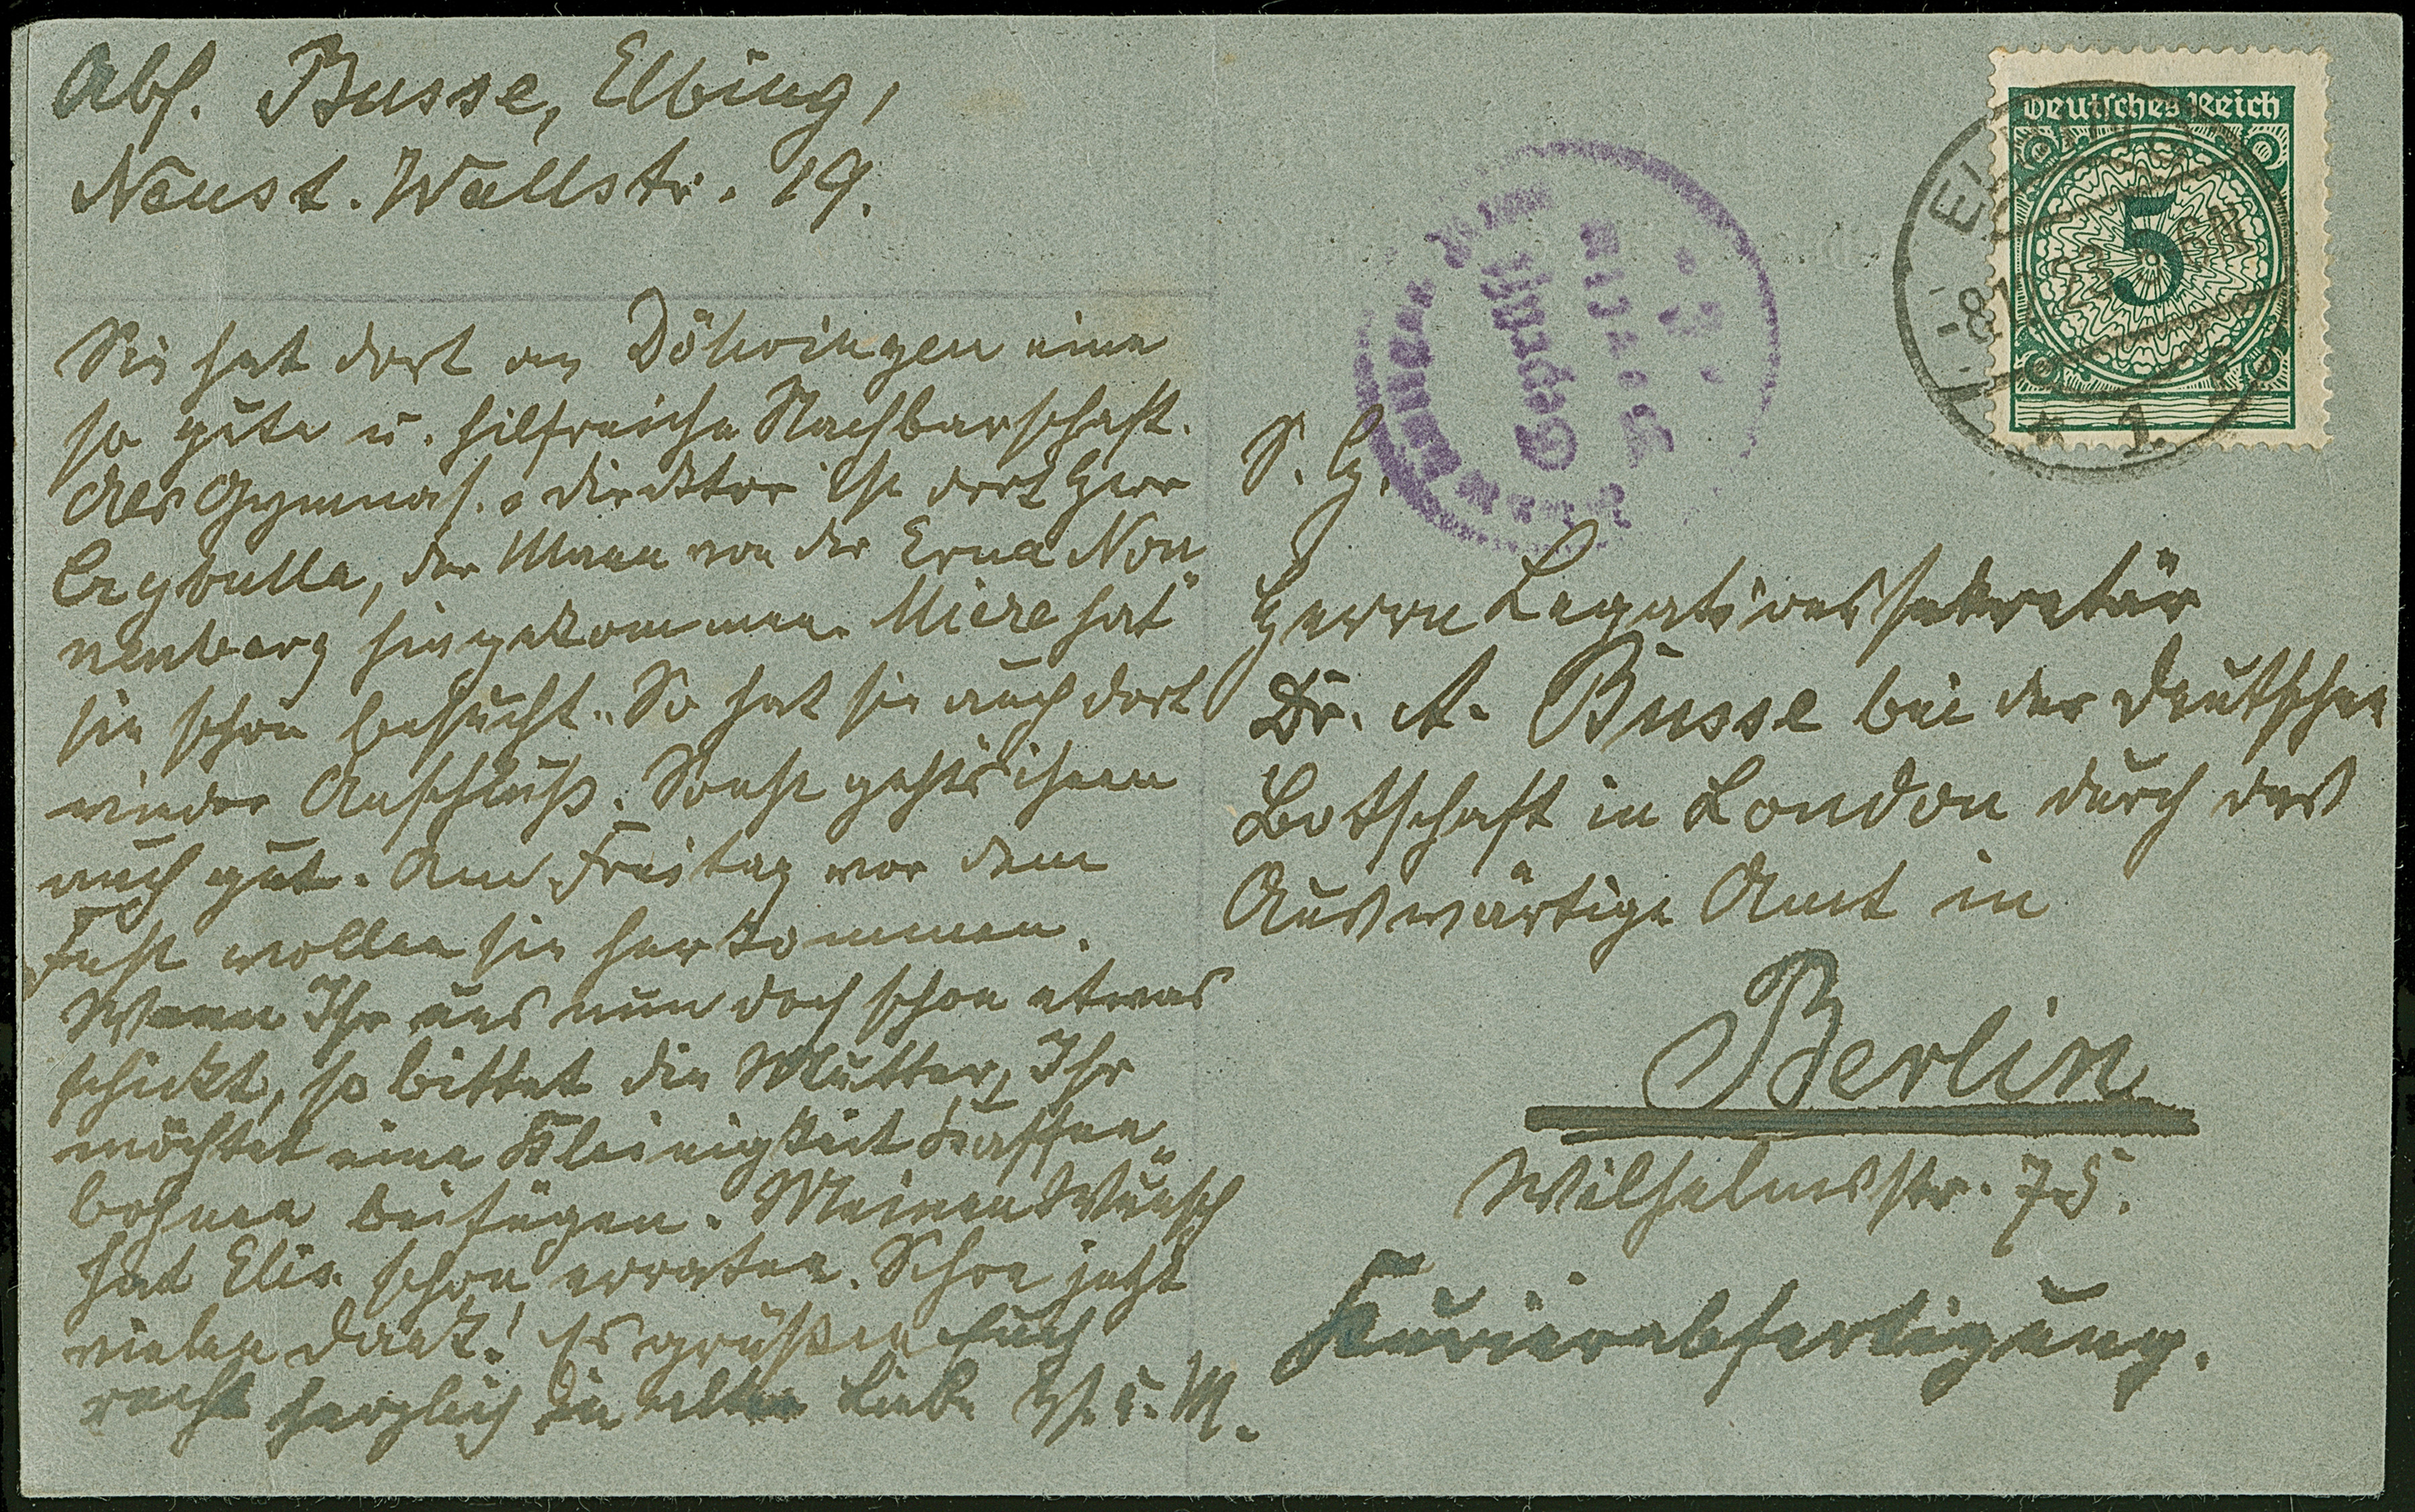 Abs. Busse, Elbing,
Neust. Wallstr. 19.
Sie hat dort an Döhringen eine
so gute u. hilfreiche Nachbarschaft.
Als Gymnas.-Direktor ist dort Herr
Czybulla, der Mann von der Erna Non-
nenberg hingekommen. Mieze hat
sie schon besucht. So hat sie auch dort
wieder Anschluß. Sonst geht's ihnen
auch gut. Am Freitag vor dem
Fest wollen sie herkommen.
Wenn Ihr uns nun doch schon etwas
schickt, so bittet die Mutter, Ihr
möchtet eine Kleinigkeit Kaffee-
bohnen beifügen. Meinen Wunsch
hat Elis. schon erraten. Schon jetzt
vielen Dank! Es grüßen Euch
recht herzlich in alter Liebe V. u. M.
Deutsches Reich
5
ELBING
* 1
Geprüft
S. H.
Herrn Legationssekretär
Dr. A. Busse bei der Deutschen
Botschaft in London durch das
Auswärtige Amt in
Berlin
Wilhelmstr. 75.
Kurierabfertigung.